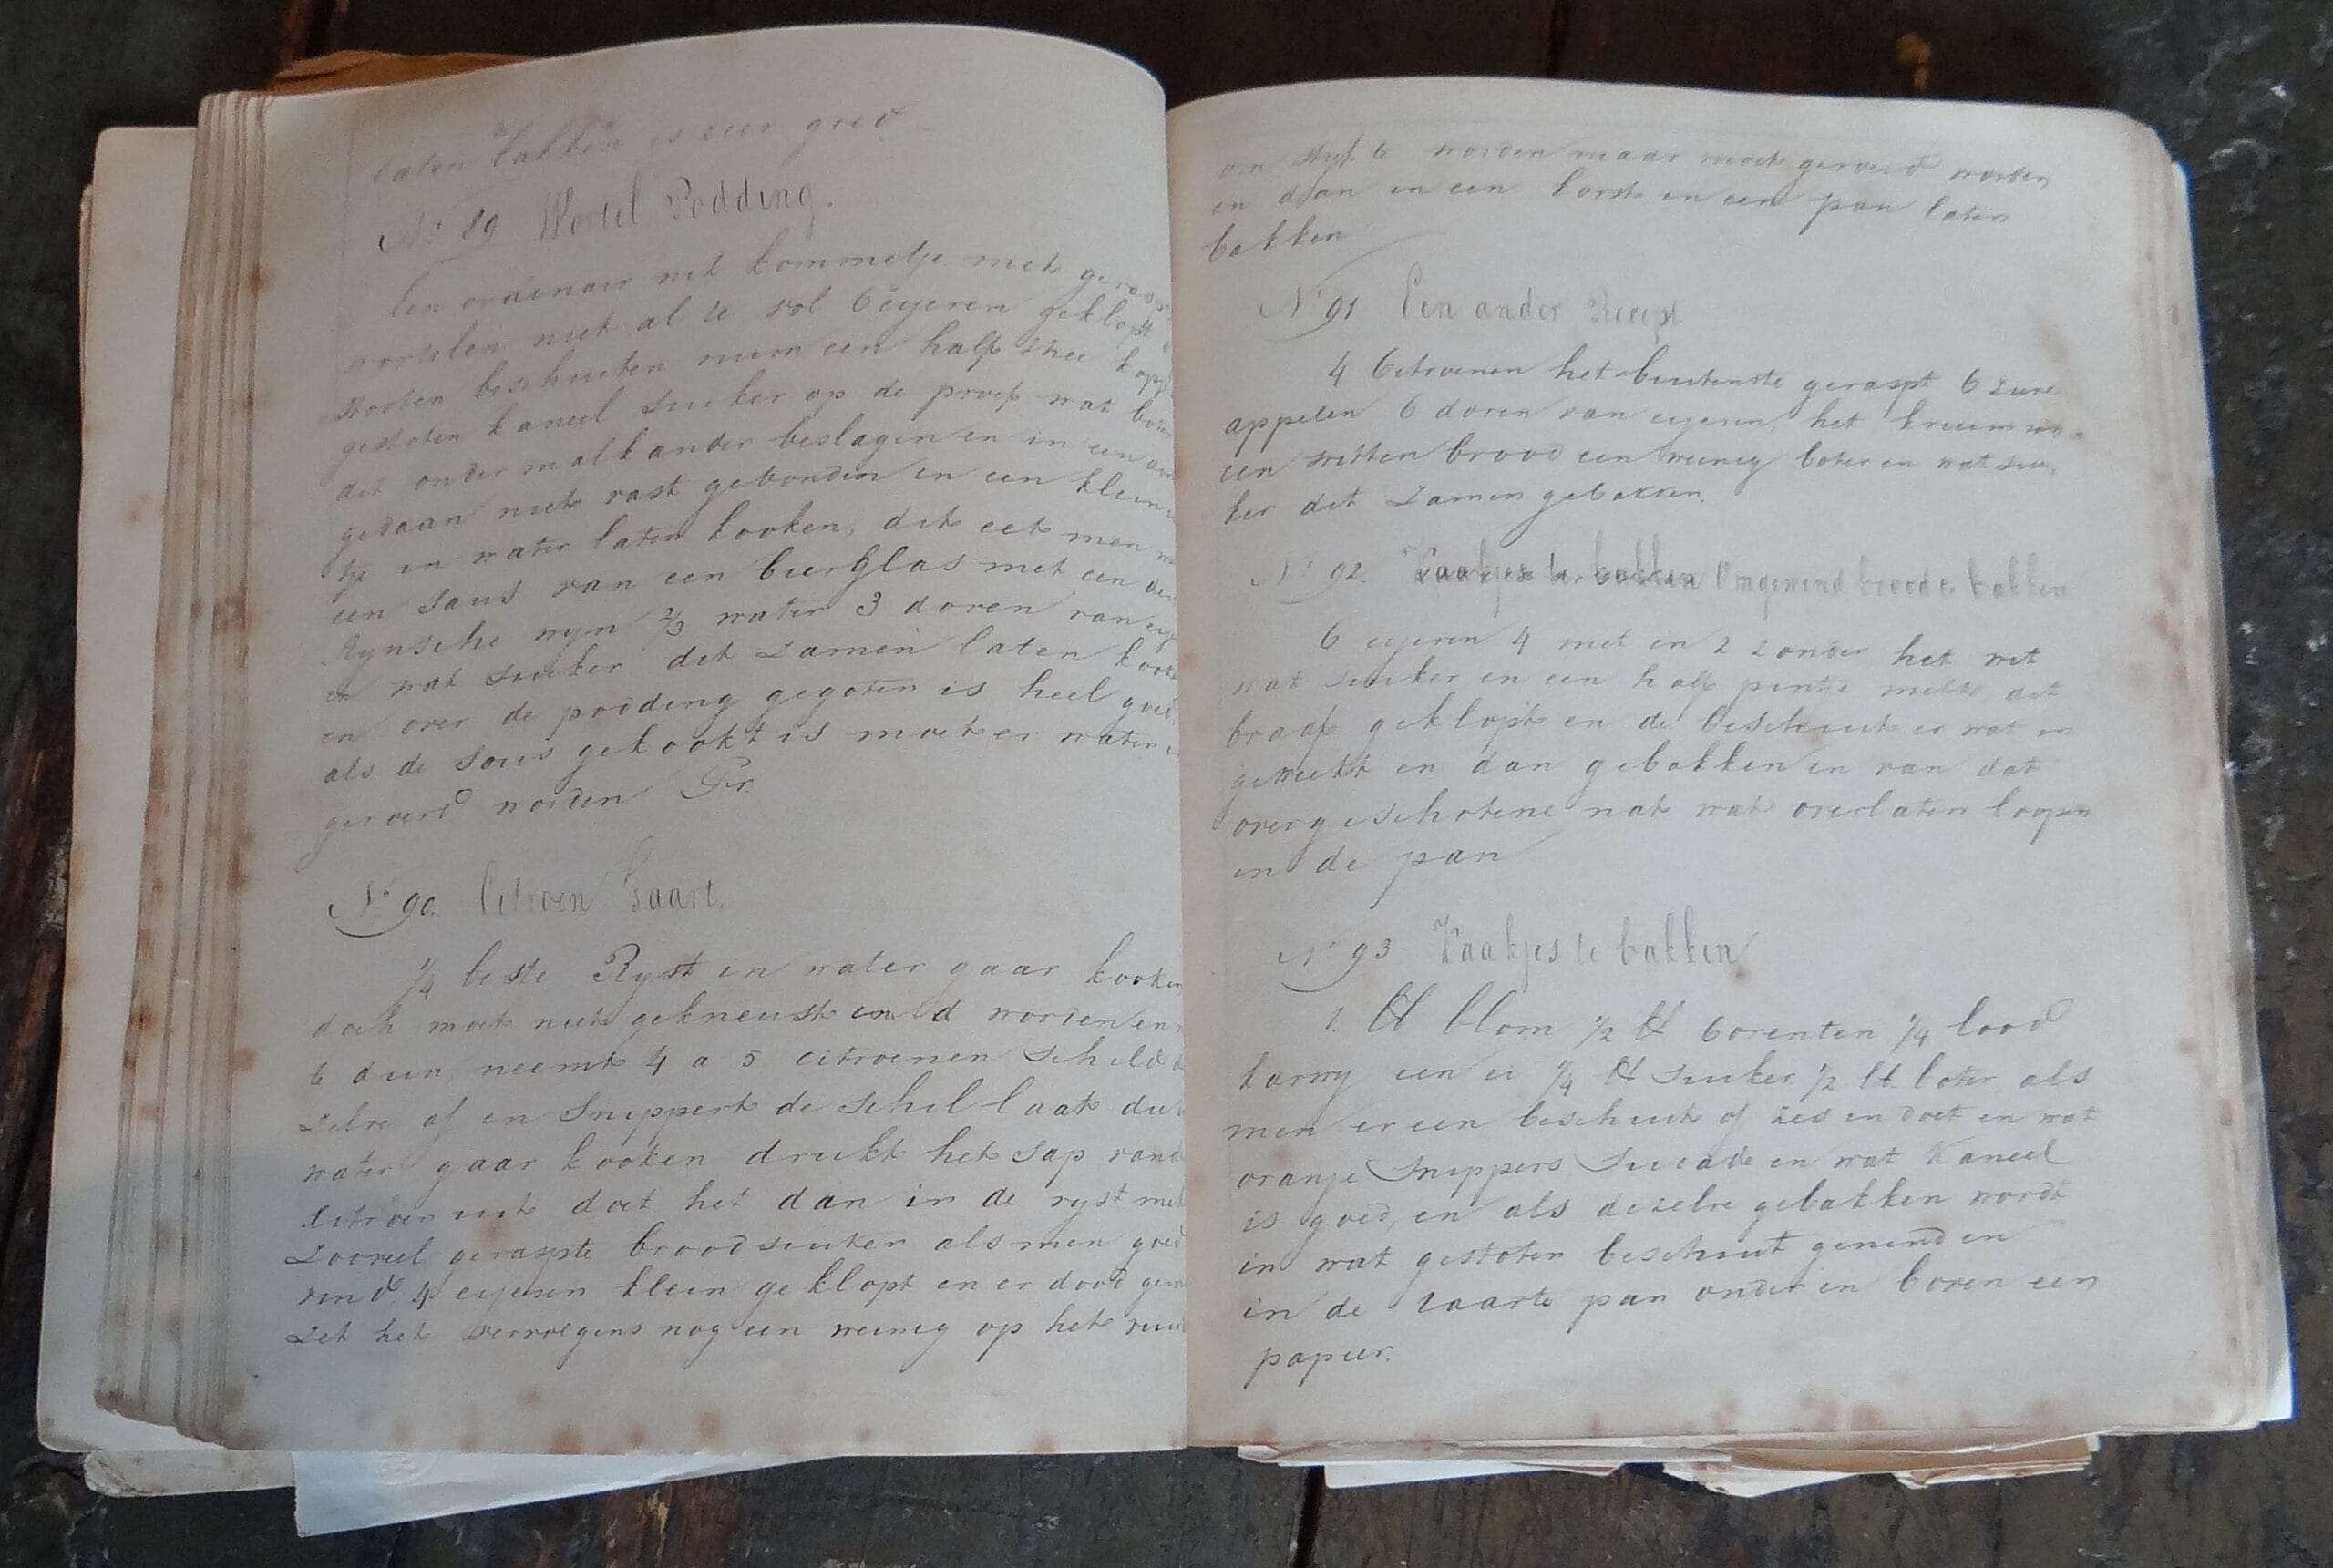 laten bakken is zeer goed
No 89 Wortel Podding.
Een ordinair wit kommetje met gerasp
wortelen niet al te vol 6 eyeren geklopt
stooten beschuiten ruim een half thee kop
gestoten kaneel suiker op de proef wat boter
dit onder malkander beslagen en in een
gedaan niet vast gebonden en een klein
tje in water laten kooken, dit eet men
een saus van een bierglas met een
Rynsche wyn 2/3 water 3 doren van
en wat suiker dit zamen laten kook
en over de podding gegoten is heel goed
als de sous gekookt is moet er water
geroerd worden Fr.
No 90. Citroen Taart.
1/4 beste Ryst in water gaar kooken
doch moet niet gekneust en d worden en
te dun, neemt 4 a 5 citroenen schild
zelve af en snippert de schil laat die
water gaar kooken drukt het sap van
citroen uit doet het dan in de ryst met
zooveel geraspte broodsuiker als men goed
vind 4 eyeren klein geklopt en er door
zet het vervolgens nog een weinig op het vuur
om styf te worden maar moet geroerd worden
en dan in een korst in een pan laten
bakken
No 91 Een ander Recept
4 Citroenen het buitenste geraspt 6 zure
appelen 6 doren van eyeren, het kruim van
een witten brood een weinig boter en wat sui-
ker dit zamen gebakken.
No 92. Kaakjes te bakken Omgewend brood te bakken
6 eyeren 4 met en 2 zonder het wit
wat suiker en een half pintje melk dit
braaf geklopt en de beschuit er wat in
geweekt en dan gebakken en van dat
overgeschotene nat wat overlaten loopen
in de pan
No 93 Kaakjes te bakken
1. ℔ blom 1/2 ℔ corenten 1/4 lood
karwy een ei 1/4 ℔ suiker 1/2 ℔ boter als
men er een beschuit of zes in doet en wat
oranje snippers sucade en wat kaneel
is goed, en als dezelve gebakken wordt
in wat gestoten beschuit gewend en
in de taarte pan onder en boven een
papier.